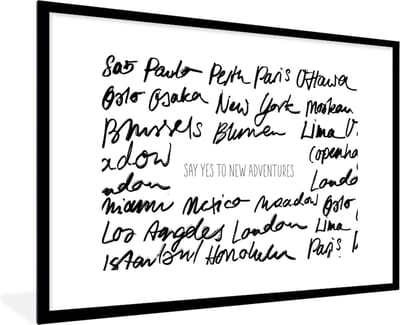 São Paulo Perth Paris Ottawa
Oslo Osaka New York Moskau
Brussels Blumen Lima
adow Copenha
SAY YES TO NEW ADVENTURES
ndon Londo
Miami Mexico Meadow Oslo
Los Angeles London Lima
Istanbul Honolulu Paris